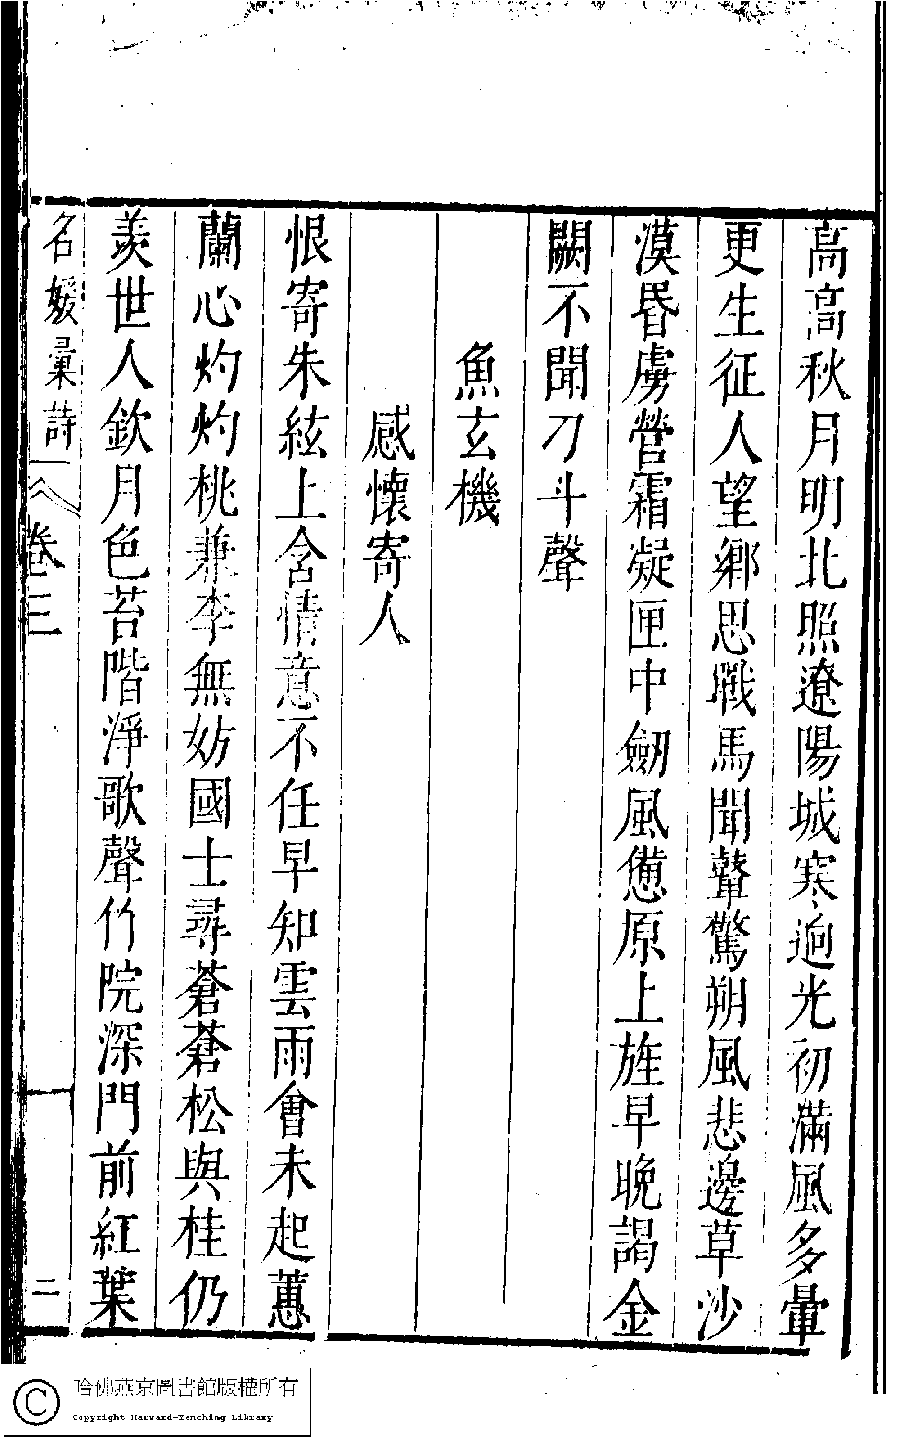 高高秋月明北照遼陽城寒逈光初滿風多暈
更生征人望鄉思戰馬聞鼙驚朔風悲邊草沙
漠昬虜營霜凝匣中劒風憊原上旌早晚謁金
闕不聞刀斗聲
魚玄機
感懷寄人
恨寄朱絃上含情意不任早知雲雨會未起蕙
蘭心灼灼桃兼李無妨國士尋蒼蒼松與桂仍
羨世人欽月色苔階淨歌聲竹院深門前紅葉
名媛彙詩 卷三 二
哈佛燕京圖書館版權所有
Copyright Harvard-Yenching Library